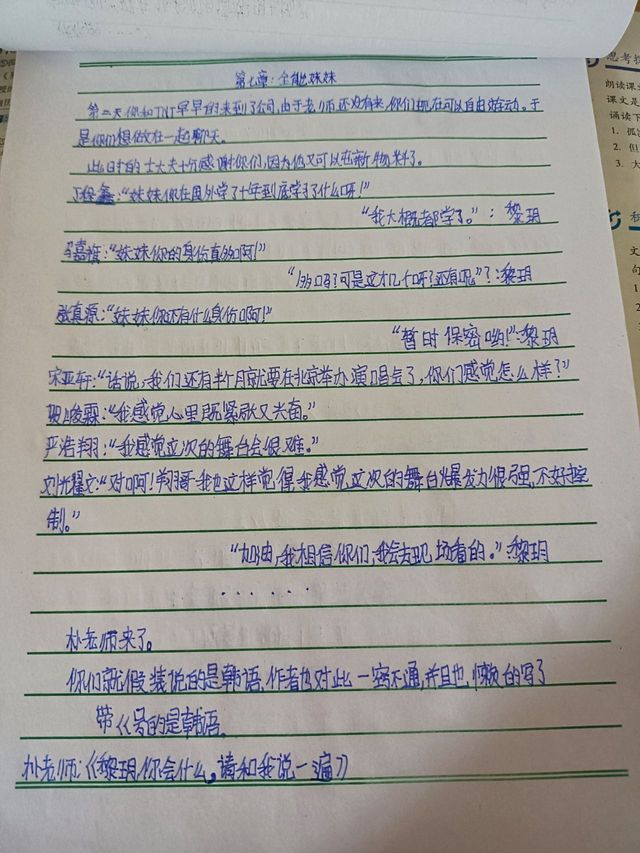 第七章:全能妹妹
第二天你和TNT早早的来到了公司,由于老师还没有来,你们现在可以自由活动。于
是你们想做在一起聊天。
此时的士大夫十分感谢你们,因为他又可以出新物料了。
丁程鑫:“妹妹你在国外学了十年到底学了什么呀!”
“我大概都学了。”:黎玥
马嘉祺:“妹妹你的身份真多啊!”
“多吗?可是这才几个呀?还有呢”?:黎玥
张真源:“妹妹你还有什么身份啊!”
“暂时保密哟!”:黎玥
宋亚轩:“话说,我们还有半个月就要在北京举办演唱会了,你们感觉怎么样?”
贺峻霖:“我感觉心里既紧张又兴奋。”
严浩翔:“我感觉这次的舞台会很难。”
刘耀文:“对啊!翔哥我也这样觉得,我感觉这次的舞台爆发力很强,不好控
制。”
“加油,我相信你们,我会去现场看的。”:黎玥
······
朴老师来了。
你们就假装说的是韩语,作者也对此一窍不通,并且也懒的写了
带《号的是韩语。
朴老师:《黎玥,你会什么,请和我说一遍》
思考
朗读课
课文是
诵读下
1. 孤
2. 但
3. 大
积
文
句